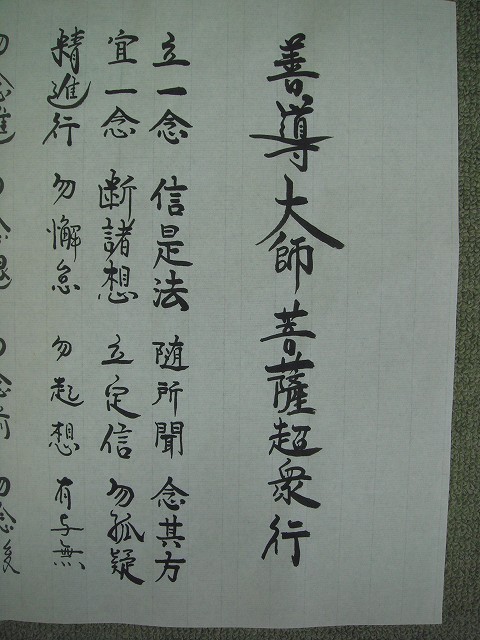 善導大師 菩薩超衆行
立一念 信是法 随所聞 念其方
宜一念 断諸想 立定信 勿狐疑
精進行 勿懈怠 勿起想 有与無
勿念進 勿念退 勿念前 勿念後